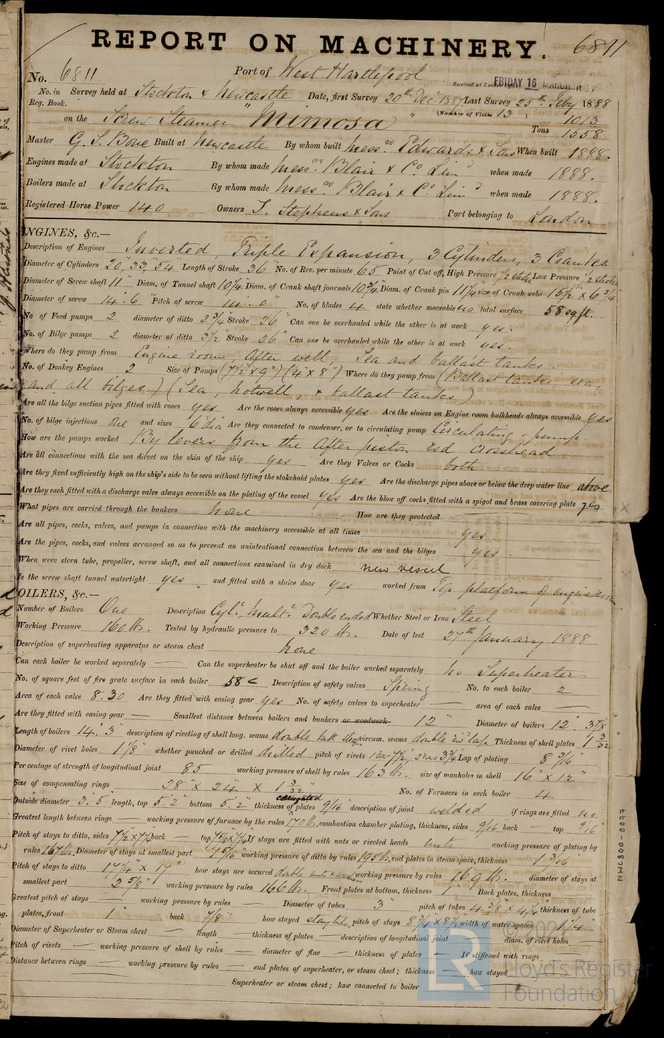 REPORT ON MACHINERY. 6811
No. 6811 Port of West Hartlepool
FRIDAY 16 MARCH 1888
No. in Survey held at Stockton & Newcastle Date, first Survey 20th Dec 1887 Last Survey 25th Feby 1888
Reg. Book. (Number of Visits 13)
on the Screw Steamer "Mimosa" Tons 1013 1558
Master G. S. Bone Built at Newcastle By whom built Messrs Edwards & Sons When built 1888.
Engines made at Stockton By whom made Messrs Blair & Co Limd when made 1888.
Boilers made at Stockton By whom made Messrs Blair & Co Limd when made 1888.
Registered Horse Power 140 Owners T. Stephens & Sons Port belonging to London
ENGINES, &c.—
Description of Engines Inverted, Triple Expansion, 3 Cylinders, 3 Cranks
Diameter of Cylinders 20", 33", 54" Length of Stroke 36" No. of Rev. per minute 65 Point of Cut off, High Pressure Low Pressure
Diameter of Screw shaft 11" Diam. of Tunnel shaft 10¼ Diam. of Crank shaft journals 10¾ Diam. of Crank pin size of Crank webs 15½" x 6¾
Diameter of screw 14.6" Pitch of screw No. of blades 4 state whether moveable no total surface 58 sq ft.
No. of Feed pumps 2 diameter of ditto 2¾" Stroke 26" Can one be overhauled while the other is at work yes.
No. of Bilge pumps 2 diameter of ditto 3½" Stroke 26" Can one be overhauled while the other is at work yes.
Where do they pump from Engine room, After well, Sea and ballast tanks
No. of Donkey Engines 2 Size of Pumps (7½ x 9") (4" x 8") Where do they pump from (Ballast tanks sea,
and all bilges) (Sea, hotwell, & ballast tanks)
Are all the bilge suction pipes fitted with roses yes Are the roses always accessible yes Are the sluices on Engine room bulkheads always accessible yes
No. of bilge injections One and sizes 6" dia Are they connected to condenser, or to circulating pump Circulating pump
How are the pumps worked By levers from the After piston rod crosshead
Are all connections with the sea direct on the skin of the ship yes Are they Valves or Cocks both
Are they fixed sufficiently high on the ship's side to be seen without lifting the stokehold plates yes Are the discharge pipes above or below the deep water line above
Are they each fitted with a discharge valve always accessible on the plating of the vessel yes Are the blow off cocks fitted with a spigot and brass covering plate yes
What pipes are carried through the bunkers none How are they protected
Are all pipes, cocks, valves, and pumps in connection with the machinery accessible at all times yes
Are the pipes, cocks, and valves arranged so as to prevent an unintentional connection between the sea and the bilges yes.
When were stern tube, propeller, screw shaft, and all connections examined in dry dock new vessel
Is the screw shaft tunnel watertight yes and fitted with a sluice door yes worked from Top platform of engine room
BOILERS, &c.—
Number of Boilers One Description Cyl. Mult. Double ended Whether Steel or Iron Steel
Working Pressure 160 lbs. Tested by hydraulic pressure to 320 lbs. Date of test 27th January 1888
Description of superheating apparatus or steam chest none
Can each boiler be worked separately — Can the superheater be shut off and the boiler worked separately No Superheater
No. of square feet of fire grate surface in each boiler 58 Description of safety valves Spring No. to each boiler 2
Area of each valve 8.30 Are they fitted with easing gear yes No. of safety valves to superheater — area of each valve —
Are they fitted with easing gear — Smallest distance between boilers and bunkers or woodwork 12" Diameter of boilers
Length of boilers 14.3" description of riveting of shell long. seams circum. seams Thickness of shell plates
Diameter of rivet holes 1⅛" whether punched or drilled drilled pitch of rivets Lap of plating
Per centage of strength of longitudinal joint 85 working pressure of shell by rules 163 lbs. size of manholes in shell 16" x 12"
Size of compensating rings 28" x 24" x 1 3/32 No. of Furnaces in each boiler 4
Outside diameter 3.5 length, top 5.2" bottom 5.2" thickness of plates corrugated 9/16" description of joint welded if rings are fitted no
Greatest length between rings — working pressure of furnace by the rules 170 lbs. combustion chamber plating, thickness, sides 9/16 back — top 9/16
Pitch of stays to ditto, sides back — top If stays are fitted with nuts or riveted heads nuts working pressure of plating by
rules 167 lbs. Diameter of stays at smallest part working pressure of ditto by rules 195 lbs. end plates in steam space, thickness
Pitch of stays to ditto how stays are secured working pressure by rules 169 lb. diameter of stays at
smallest part working pressure by rules 166 lb. Front plates at bottom, thickness 1" Back plates, thickness
Greatest pitch of stays — working pressure by rules Diameter of tubes 3" pitch of tubes thickness of tube
plates, front 1" back ⅞" how stayed stay tube pitch of stays width of water spaces
Diameter of Superheater or Steam chest length thickness of plates — description of longitudinal joint diam. of rivet holes —
Pitch of rivets — working pressure of shell by rules — diameter of flue — thickness of plates — If stiffened with rings —
Distance between rings — working pressure by rules — end plates of superheater, or steam chest; thickness — how stayed —
Superheater or steam chest; how connected to boiler
NWC800-0097
LR
© 202
Lloyd's Register
Foundation